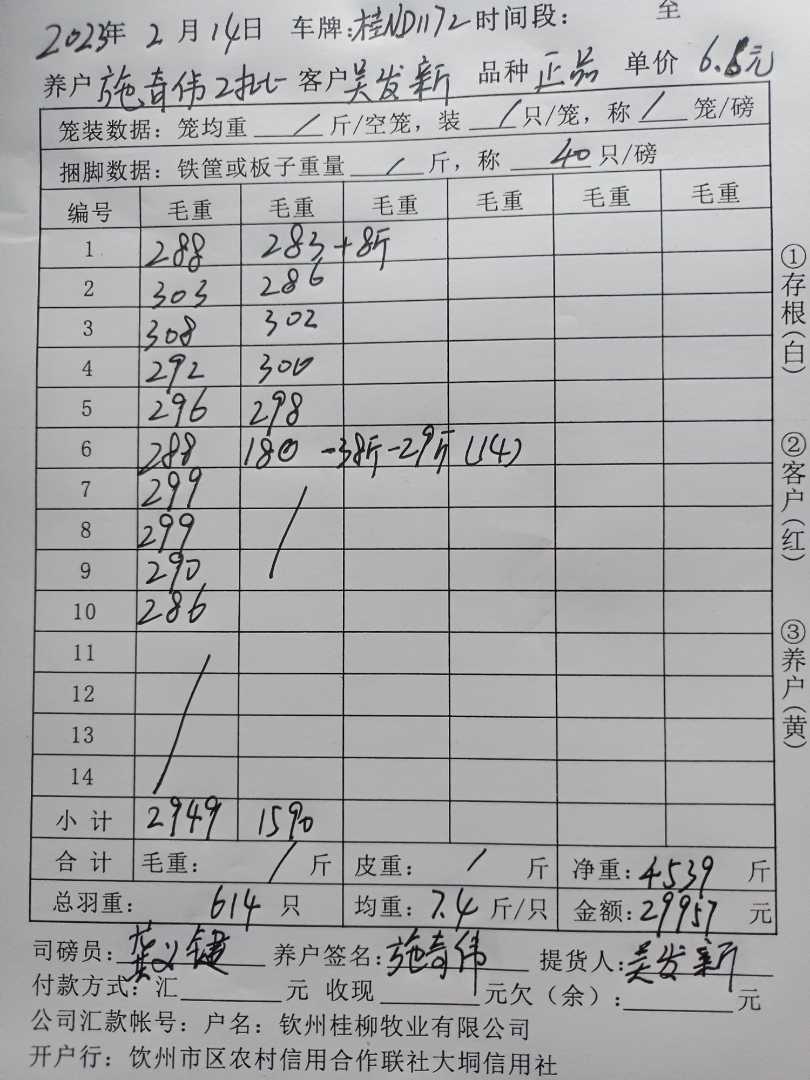 2023年 2 月 14日 车牌:桂ND1172 时间段: 至
养户 施奇伟2批 客户 吴发新 品种 正品 单价 6.6元
笼装数据: 笼均重 / 斤/空笼, 装 / 只/笼, 称 / 笼/磅
捆脚数据: 铁筐或板子重量 / 斤, 称 40 只/磅
编号 毛重 毛重 毛重 毛重 毛重 毛重
1 288 283+8斤
2 303 286
3 308 302
4 292 300
5 296 298
6 288 180 -38斤-29斤(14)
7 299
8 299
9 290
10 286
11
12
13
14
小计 2949 1590
合计 毛重: / 斤 皮重: / 斤 净重: 4539 斤
总羽重: 614 只 均重: 7.4 斤/只 金额: 29957 元
司磅员: 龚义键 养户签名: 施奇伟 提货人: 吴发新
付款方式: 汇 元 收现 元欠(余): 元
公司汇款帐号: 户名: 钦州桂柳牧业有限公司
开户行: 饮州市区农村信用合作联社大垌信用社
①存根(白)
②客户(红)
③养户(黄)